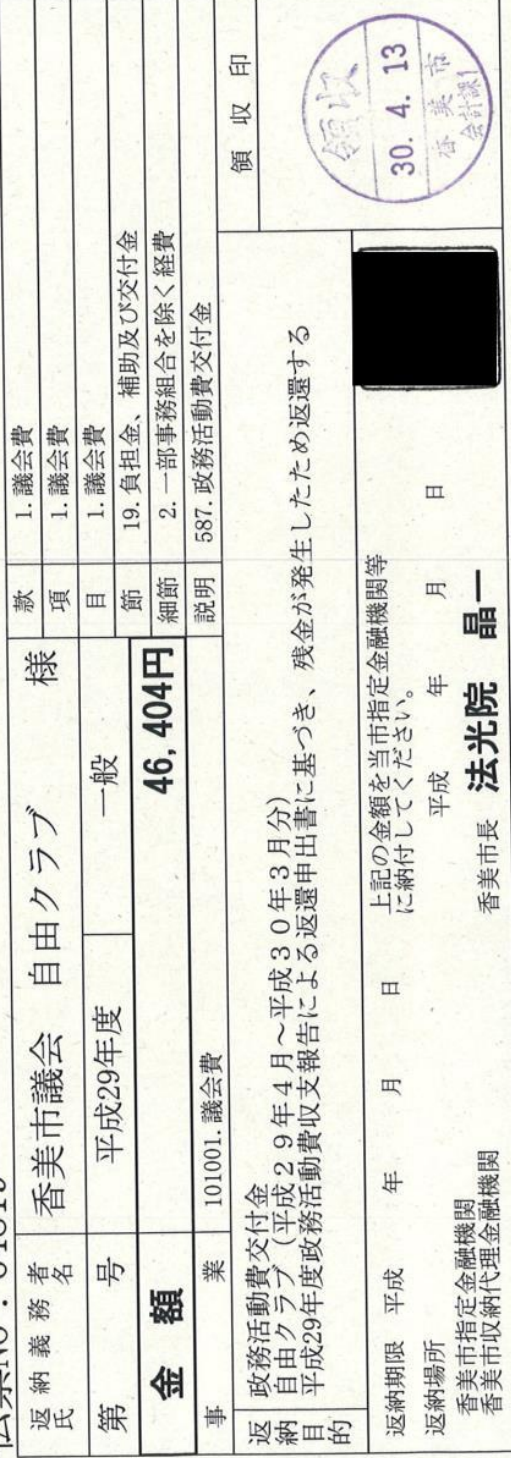 返納義務者
氏名
香美市議会 自由クラブ 様
第 号
平成29年度
一般
金額
46,404円
事業
101001.議会費
款
1.議会費
項
1.議会費
目
1.議会費
節
19.負担金、補助及び交付金
細節
2.一部事務組合を除く経費
説明
587.政務活動費交付金
返納目的
政務活動費交付金
自由クラブ(平成29年4月~平成30年3月分)
平成29年度政務活動費収支報告による返還申出書に基づき、残金が発生したため返還する
領収印
領収
30. 4. 13
香美市
会計課1
返納期限 平成 年 月 日
返納場所
香美市指定金融機関
香美市収納代理金融機関
上記の金額を当市指定金融機関等
に納付してください。
平成 年 月 日
香美市長 法光院 晶一